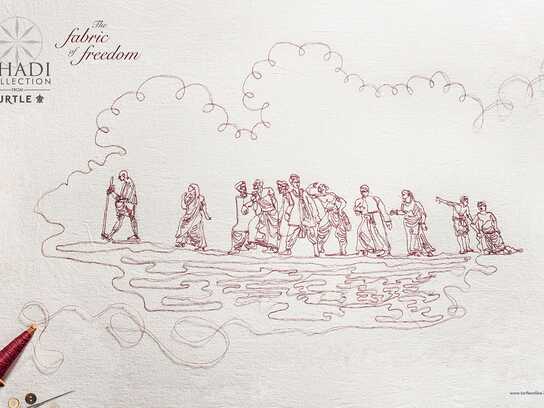 HADI
LLECTION
FROM
URTLE
The
fabric
of
freedom